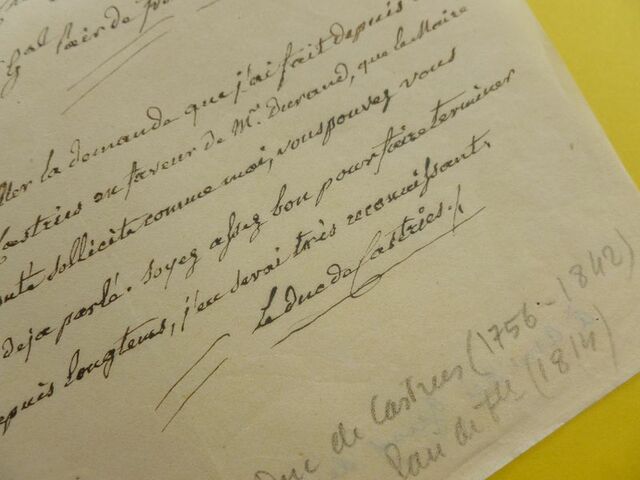 Gal Pair de
la demande que j'ai fait depuis
Castries en faveur de Mr. Durand, que le Maire
sollicite comme moi, vous pouvez vous
deja parlé. soyez assez bon pour faire terminer
depuis longtems, j'en serai très reconnaissant,
Le duc de Castries
Duc de Castries (1756-1842)
Pair de (1814)